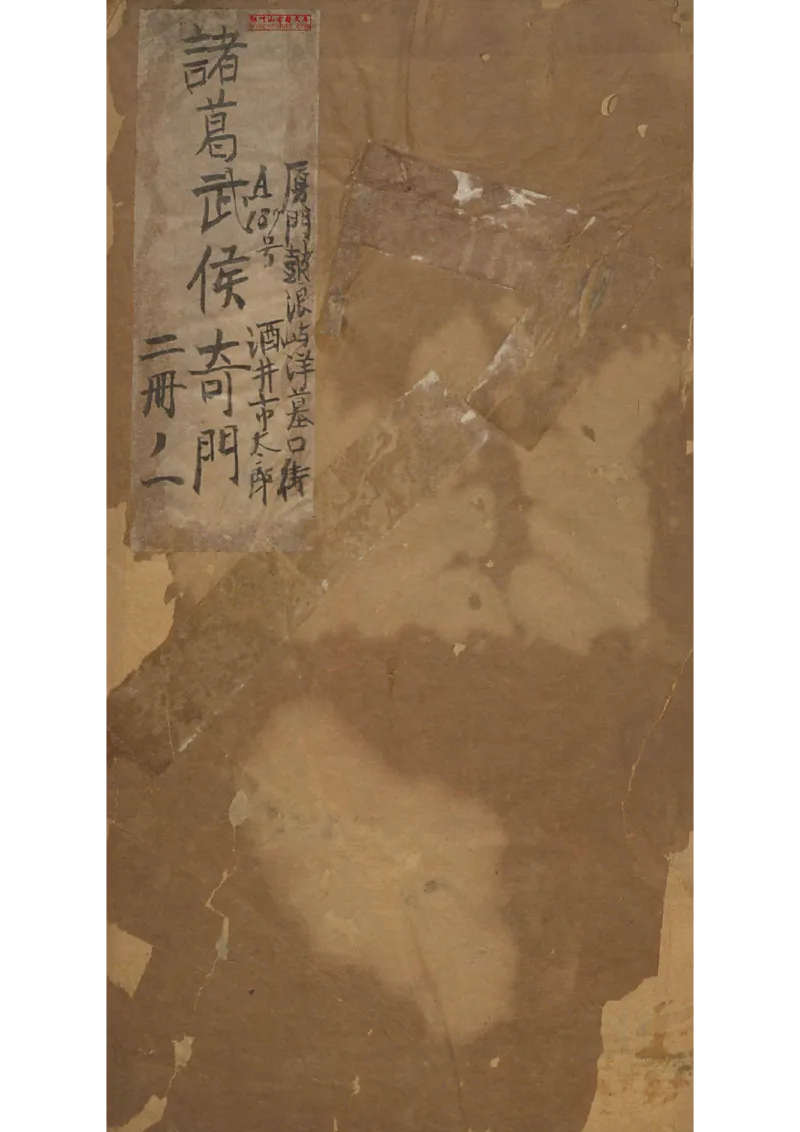 廈門鼓浪嶼洋墓口街
A187号 酒井市太郎
諸葛武侯奇門
二冊ノ一